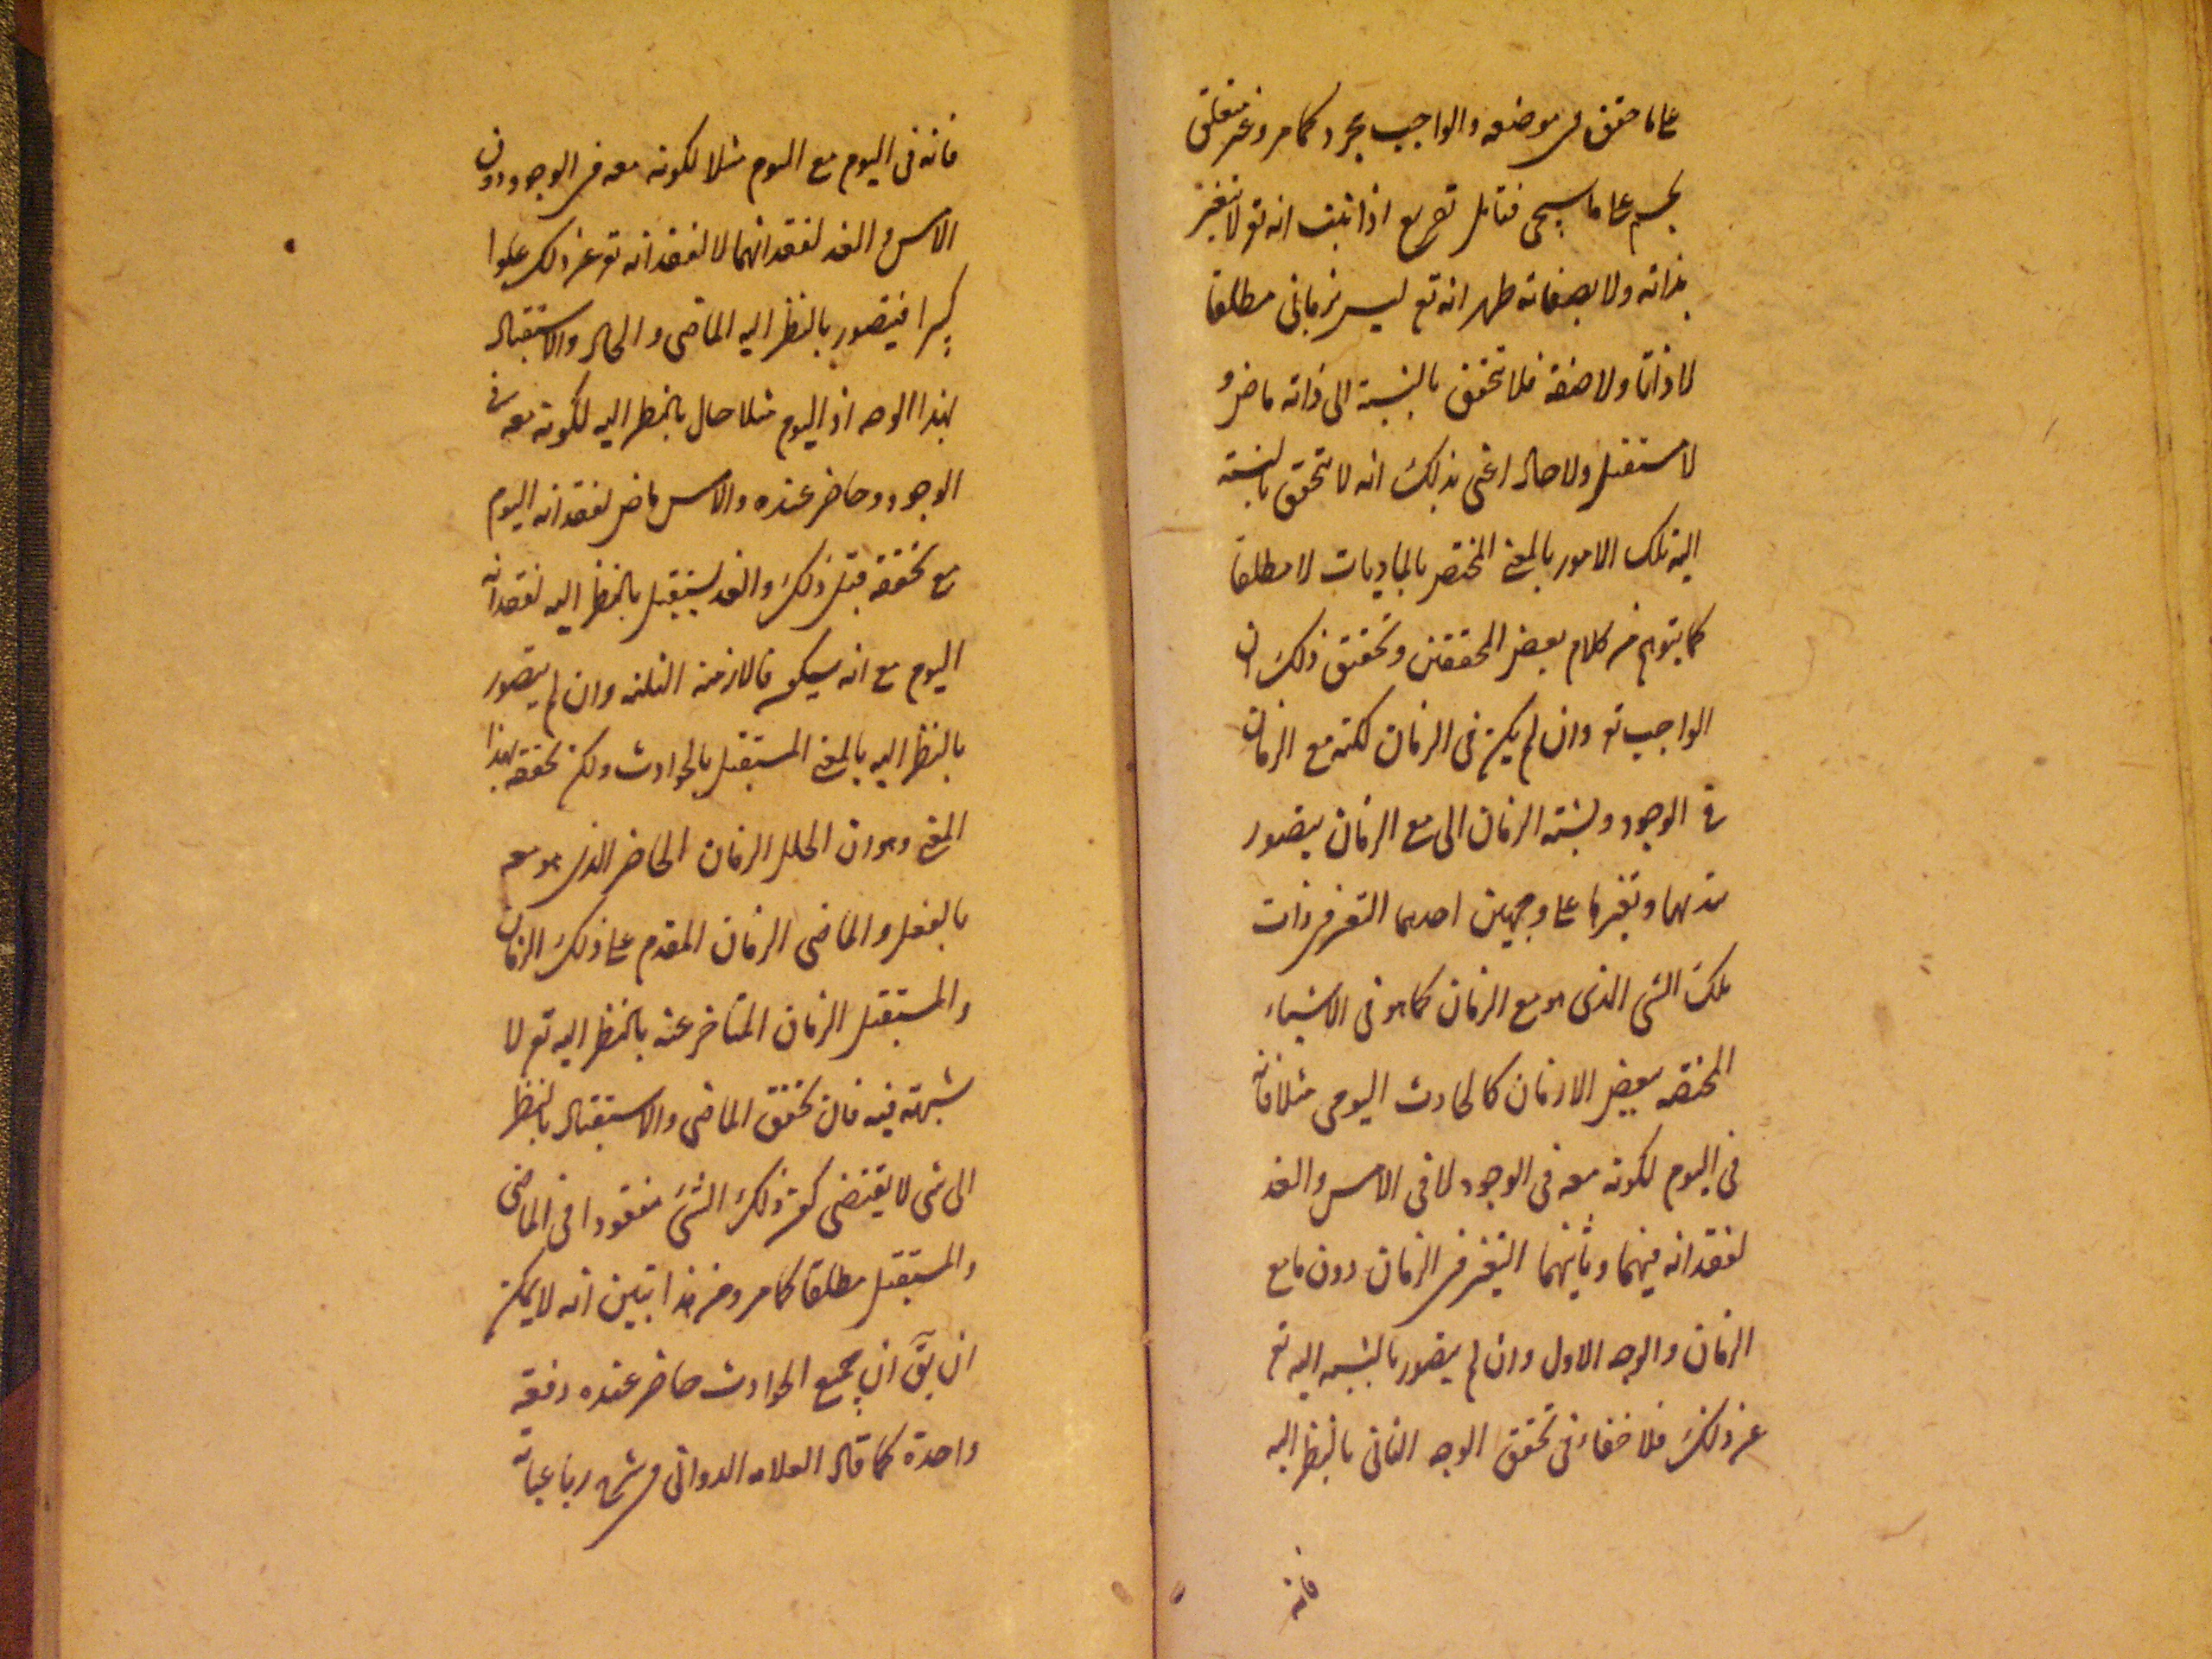 على ما حقق فى موضعه والواجب مجرد كما مر وغير متعلق
بجسم على ما سيجى فتامل تفريع اذا ثبت انه تع لا يتغير
بذاته ولا بصفاته ظهر انه تع ليس بزمانى مطلقا
لا ذاتا ولا صفة فلا تحقق بالنسبة الى ذاته ماض و
لا مستقبل ولا حال اعنى بذلك انه لا تتحقق بالنسبة
اليه تلك الامور بالمعنى المختص بالماديات لا مطلقا
كما يتوهم من كلام بعض المحققين وتحقيق ذلك ان
الواجب تع وان لم يكن فى الزمان لكنه مع الزمان
فى الوجود ونسبة الزمان الى مع الزمان يتصور
وتغيرها على وجهين احدهما التغير فى ذات
ذلك الشى الذى هو مع الزمان كما هو فى الاشياء
المختصه ببعض الازمان كالحادث اليومى مثلا فانه
فى اليوم لكونه معه فى الوجود لا فى الامس والغد
لفقدانه فيهما وثانيهما التغير فى الزمان دون ما مع
الزمان والوجه الاول وان لم يتصور بالنسبه اليه تع
عن ذلك فلا خفاء فى تحقق الوجه الثانى بالنظر اليه
فانه
فانه فى اليوم مع اليوم مثلا لكونه معه فى الوجود دون
الامس و الغد لفقدانهما لا لفقدانه تع عن ذلك علوا
كبيرا فيتصور بالنظر اليه الماضى و الحال والاستقبال
بهذا الوجه اذ اليوم مثلا حال بالنظر اليه لكونه معه فى
الوجود وحاضر عنده والامس ماض لفقدانه اليوم
مع تحققه قبل ذلك والغد مستقبل بالنظر اليه لفقدانه
اليوم مع انه سيكون فالازمنه الثلثه وان لم يتصور
بالنظر اليه بالمعنى المستقبل بالحوادث ولكن تحققه بهذا
المعنى وهو ان الحال الزمان الحاضر الذى هو معه
بالفعل والماضى الزمان المقدم على ذلك الزمان
والمستقبل الزمان المتاخر عنه بالنظر اليه تع لا
شبهة فيه فان تحقق الماضى والاستقبال بالنظر
الى شى لا يقتضى كون ذلك الشئ مفقودا فى الماضى
والمستقبل مطلقا كما مر ومن هذا تبين انه لا يمكن
ان يق ان جميع الحوادث حاضر عنده دفعة
واحدة كما قال العلامه الدوانى فى شرح رباعياته